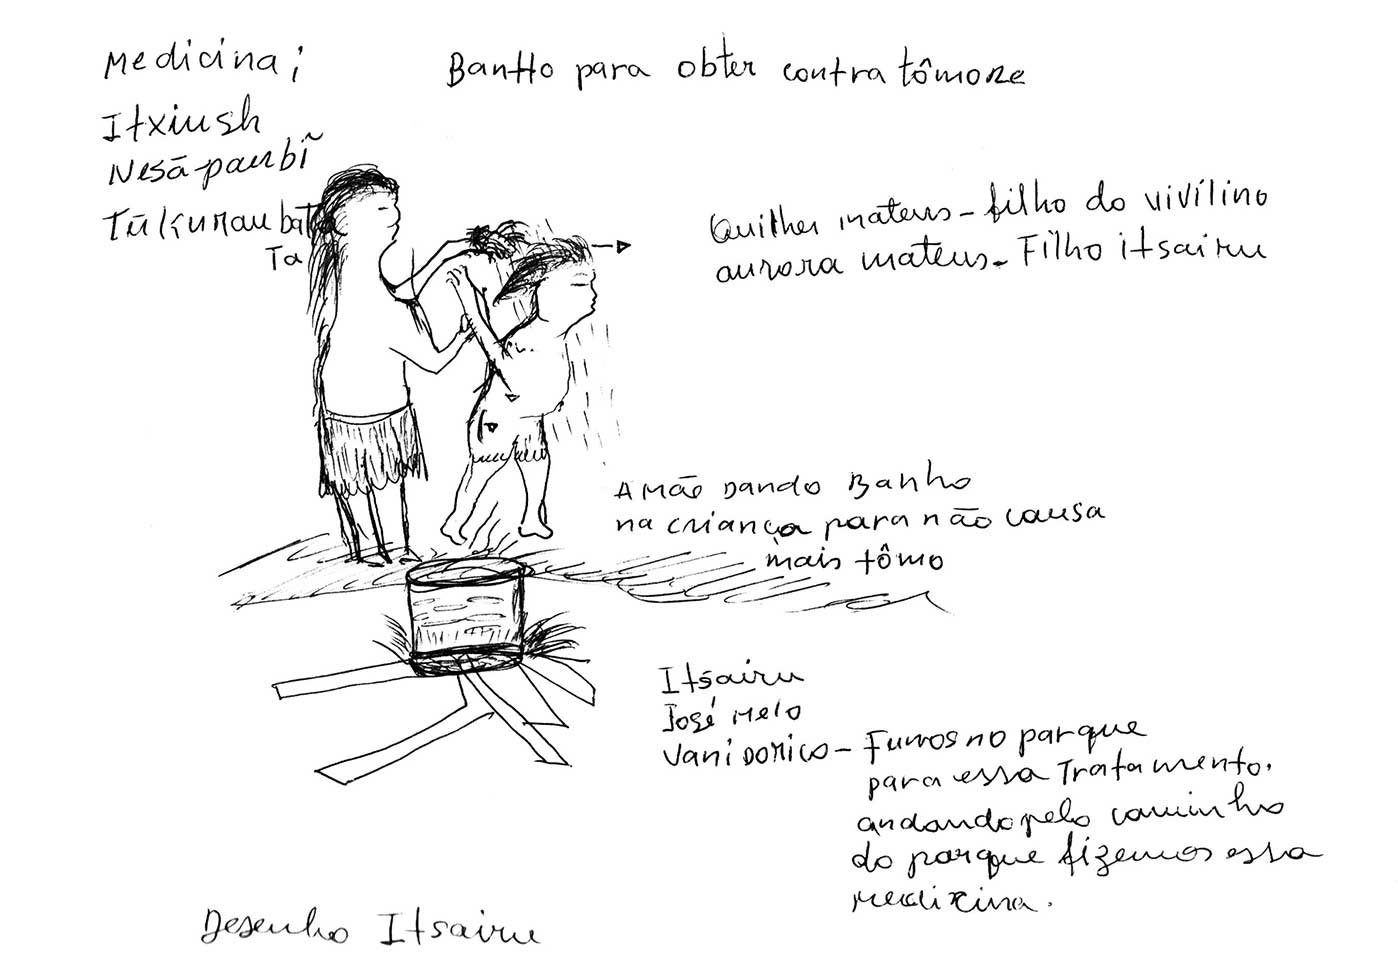 Medicina;
Itxiush
Nesã-paubĩ
Tũkunau bata
Ta
Banho para obter contra tômore
Quilher mateus - filho do vivílino
aurora mateus - Filho itsairu
A Mão Dando Banho
na criança para não causa
mais tômo
Itsairu
José Melo
Vanidorico - Fumos no parque
para essa Tratamento.
andando pelo caminho
do parque fizemos essa
medixina.
Desenho Itsairu